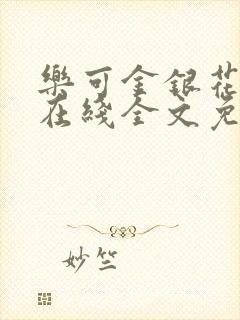 樂可金銀花
在綫全文免
妙竺